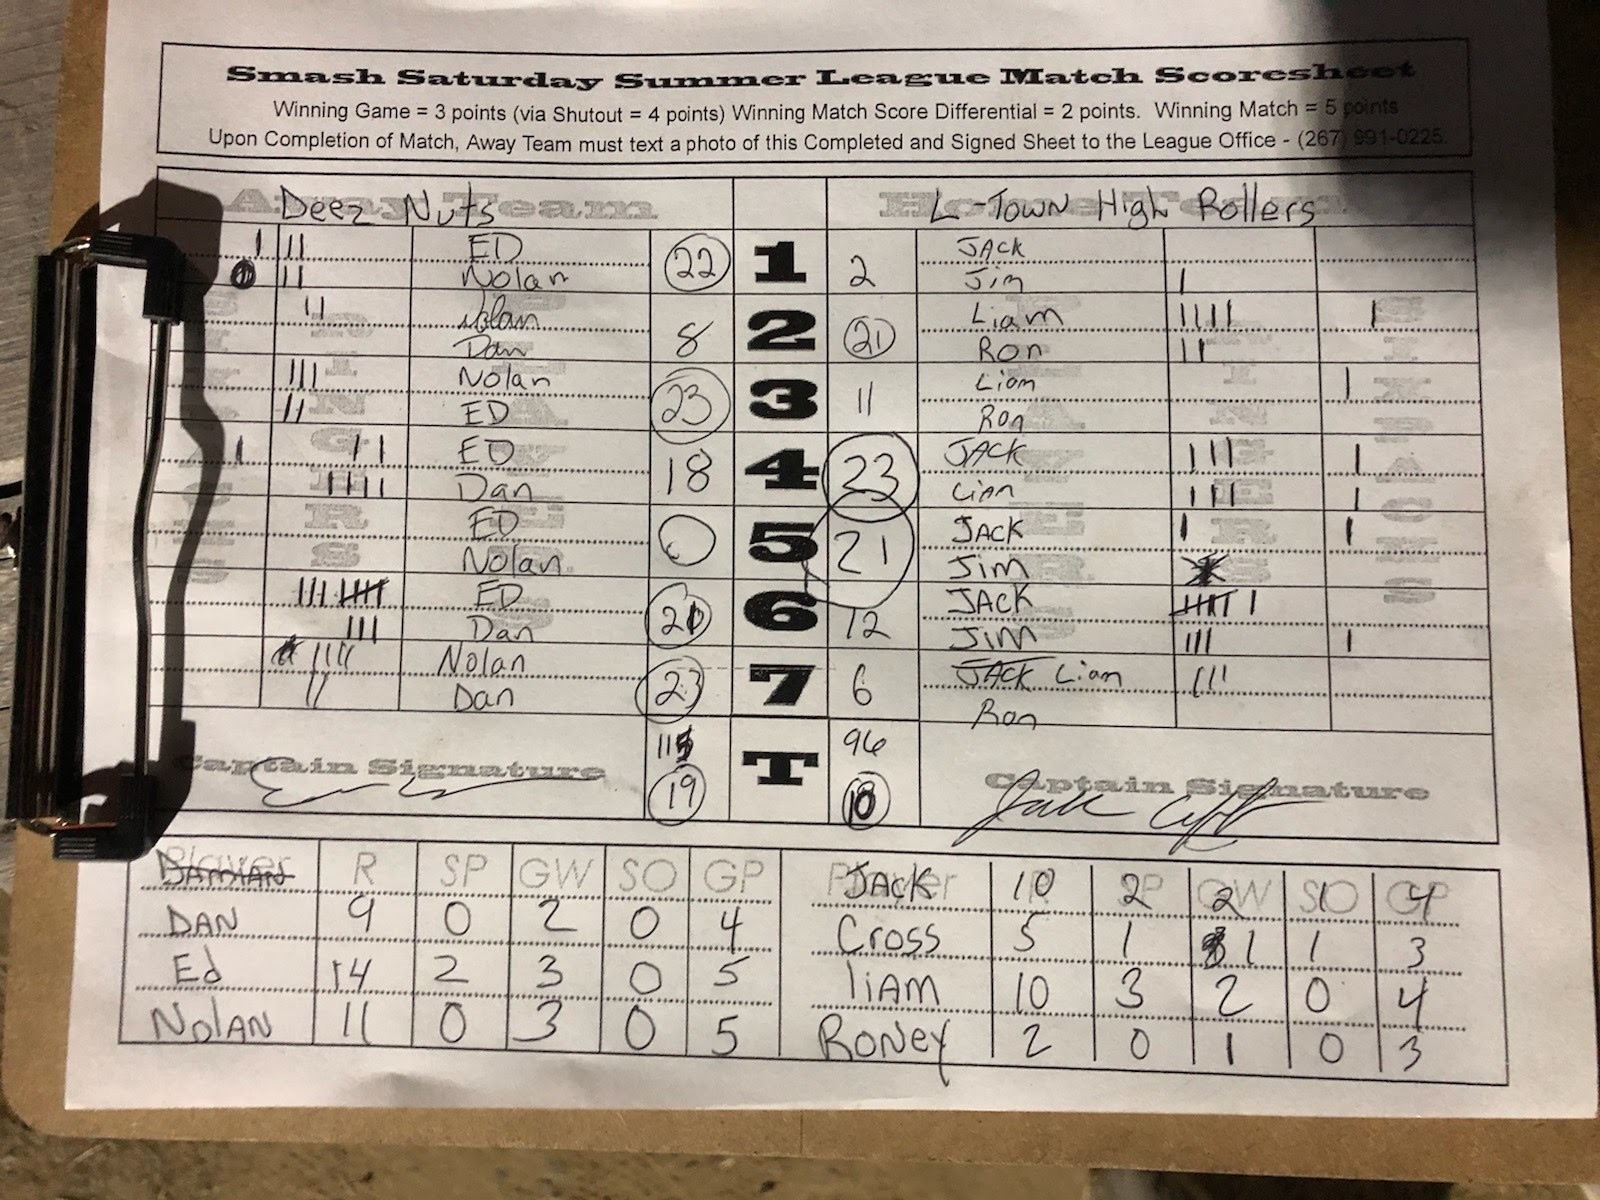 Smash Saturday Summer League Match Scoresheet
Winning Game = 3 points (via Shutout = 4 points) Winning Match Score Differential = 2 points. Winning Match = 5 points
Upon Completion of Match, Away Team must text a photo of this Completed and Signed Sheet to the League Office - (267) 991-0225
Away Team Deez Nuts Home Team L-Town High Rollers
ED 22 1 2 JACK
Nolan Jim
Nolan 8 2 21 Liam
Dan Ron
Nolan 23 3 11 Liam
ED Ron
ED 18 4 23 JACK
Dan Liam
ED 0 5 21 JACK
Nolan Jim
ED 21 6 12 JACK
Dan Jim
Nolan 23 7 6 JACK Liam
Dan Ron
115 T 96
Captain Signature 19 10 Captain Signature
Player R SP GW SO GP JACK 10 2 2 1 4
DAN 9 0 2 0 4 Cross 5 1 1 1 3
Ed 14 2 3 0 5 LIAM 10 3 2 0 4
NOLAN 11 0 3 0 5 RONEY 2 0 1 0 3